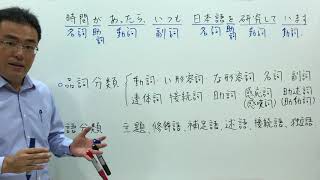 時間があったら、いつも日本語を研究しています
名詞 助詞 動詞 副詞 名詞 助詞 動詞
品詞分類 動詞 い形容詞 な形容詞 名詞 副詞
連体詞 接続詞 感動詞 助動詞
(感嘆詞) (助動詞)
語分類 主題、修飾語、補足語、述語、接続語、独立語